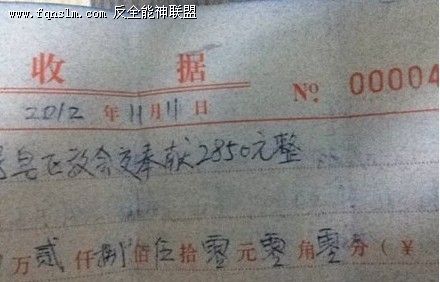 www.fqnslm.com 反全能神联盟
收 据
2012 年 11 月 11 日 No. 00004
教会交奉献2850元整
万 贰 仟 捌 佰 伍 拾 零 元 零 角 零 分 (¥